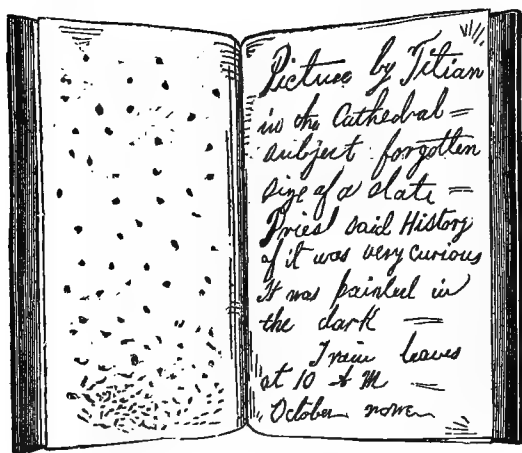 Picture by Titian
in the Cathedral =
subject forgotten
size of a slate =
Priest said History
of it was very curious
It was painted in
the dark =
Train leaves
at 10 A M =
October